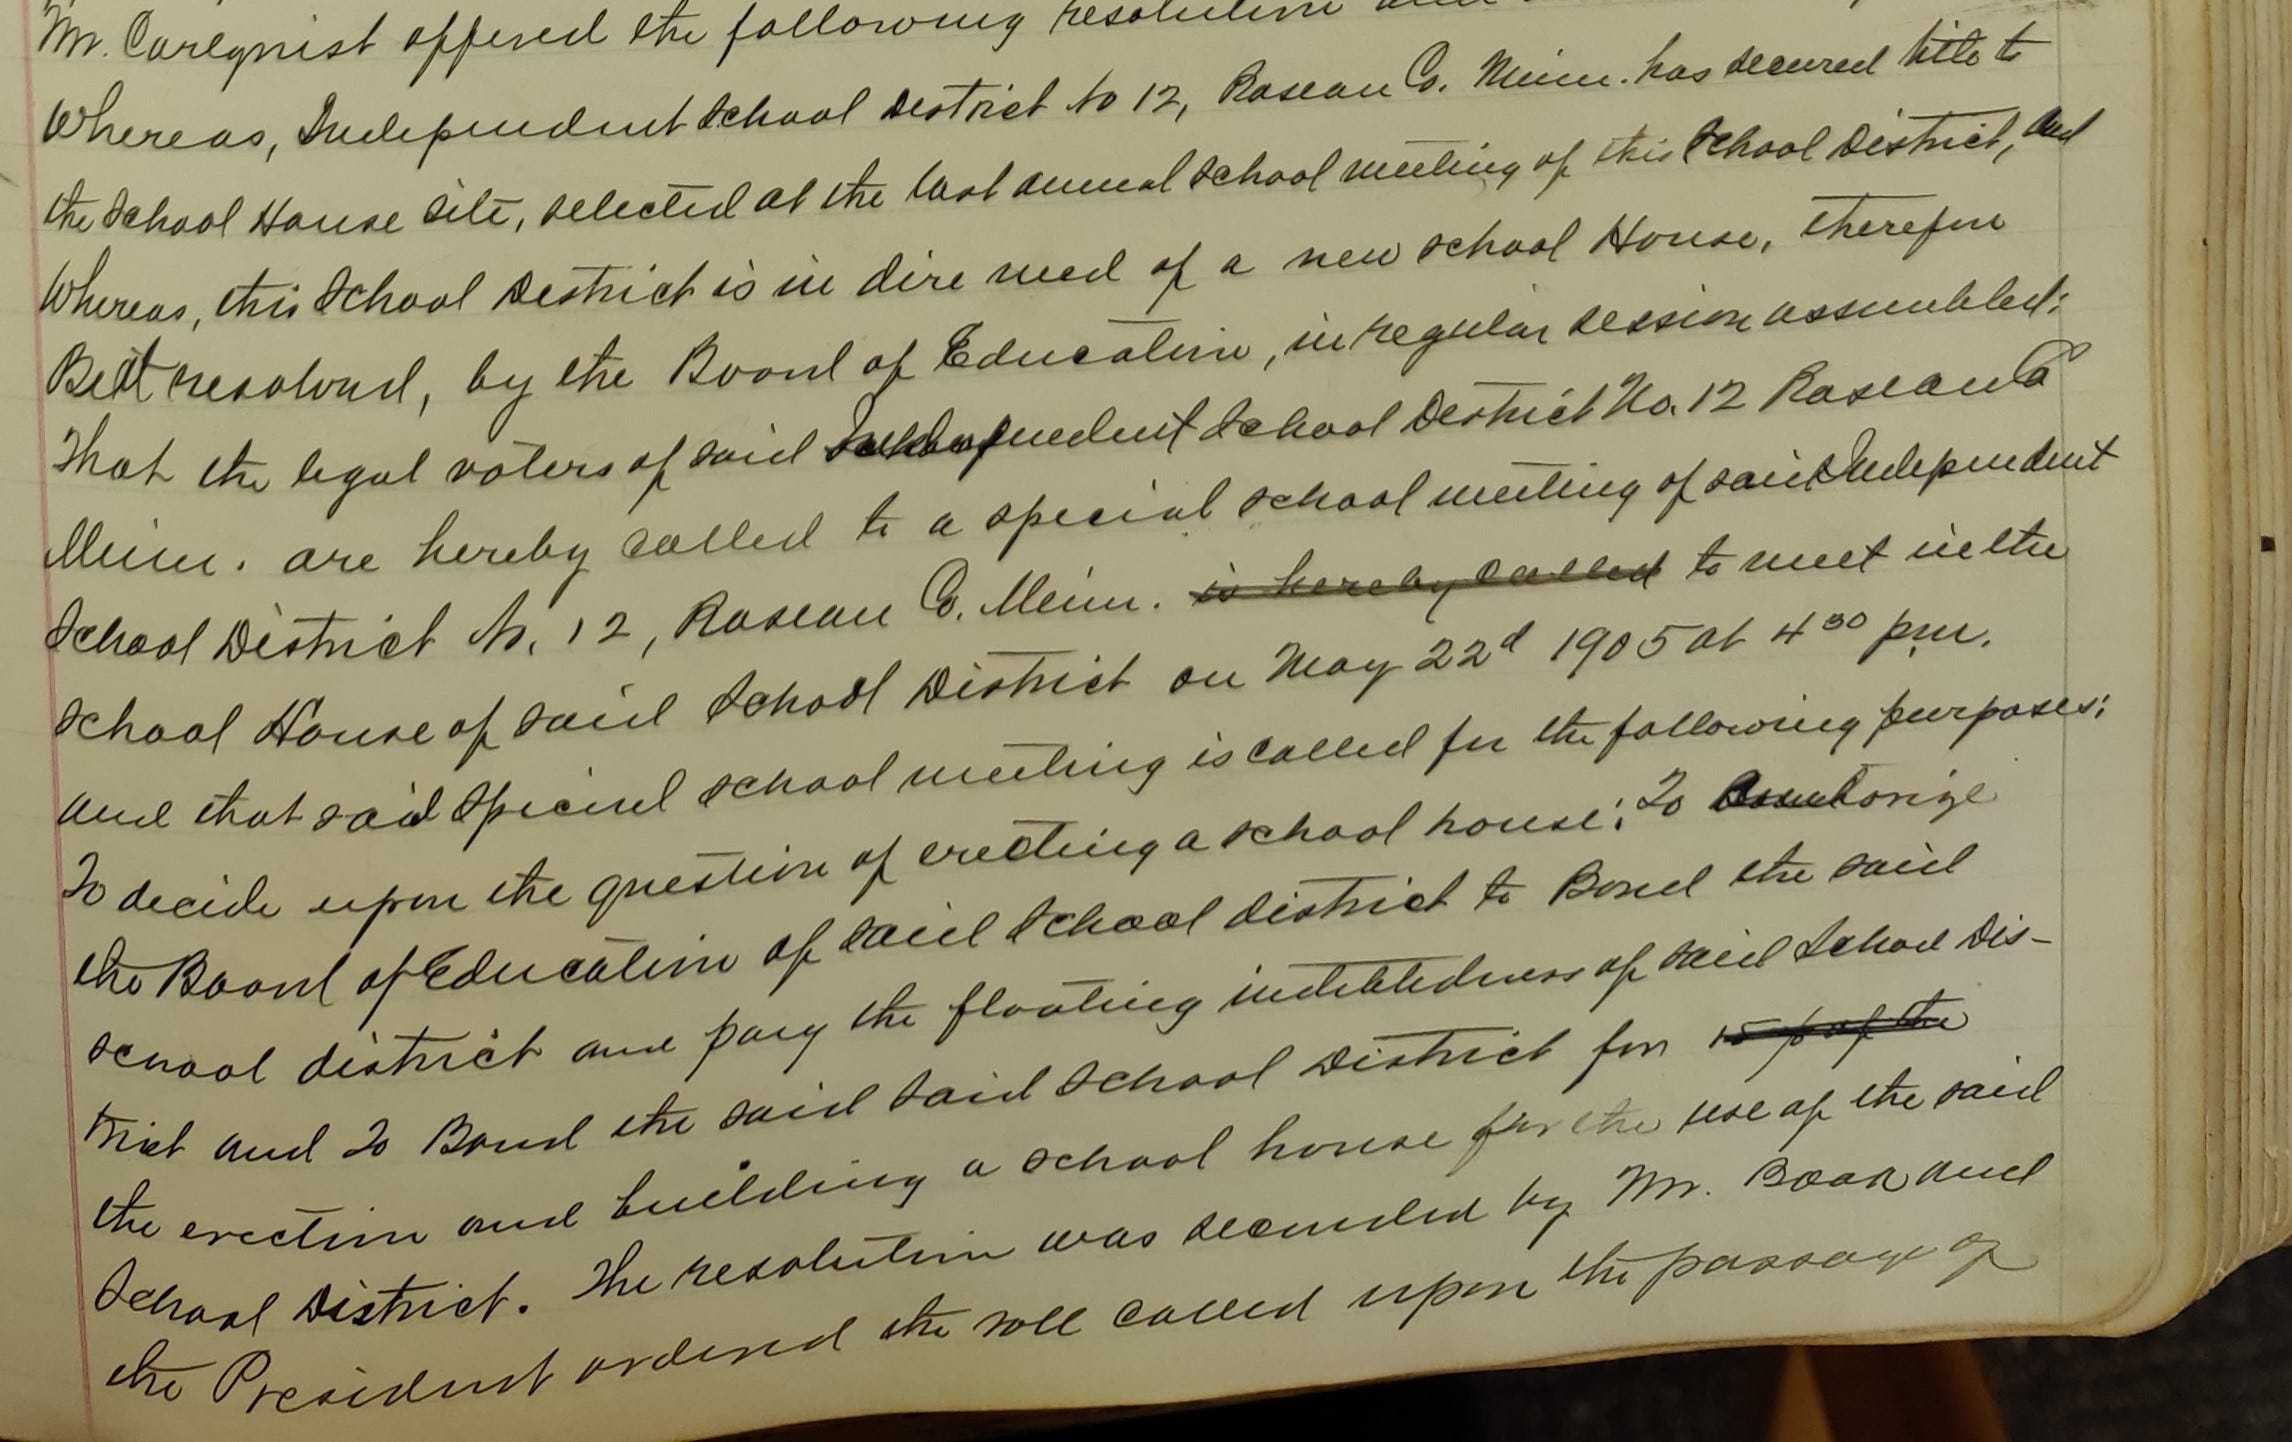 Mr. Carlquist offered the following resolution and
Whereas, Independent School District No 12, Roseau Co. Minn. has secured title to
the School House site, selected at the last annual school meeting of this School District, and
Whereas, this School District is in dire need of a new school House, therefore
Be it resolved, by the Board of Education, in regular session assembled:
That the legal voters of said Independent School District No. 12 Roseau Co
Minn. are hereby called to a special school meeting of said Independent
School District No. 12, Roseau Co. Minn. is hereby called to meet in the
school House of said School District on May 22d 1905 at 4 30 p.m.
and that said special school meeting is called for the following purposes:
To decide upon the question of erecting a school house; To autorize
the Board of Education of said School district to Bond the said
school district and pay the floating indebtedness of said School Dis-
trict and To Bond the said said School District for 15 p of the
the erection and building a school house for the use of the said
School District. The resolution was seconded by Mr. Boak and
the President ordered the roll called upon the passage of